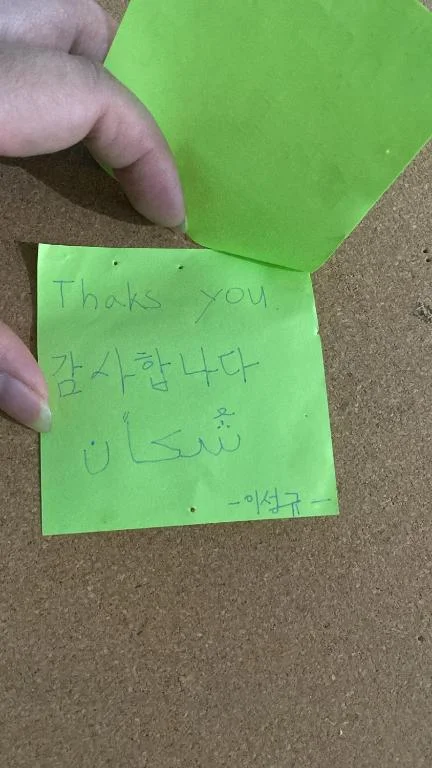 Thaks you.
감사합나다
شُكاًن
-이성규-